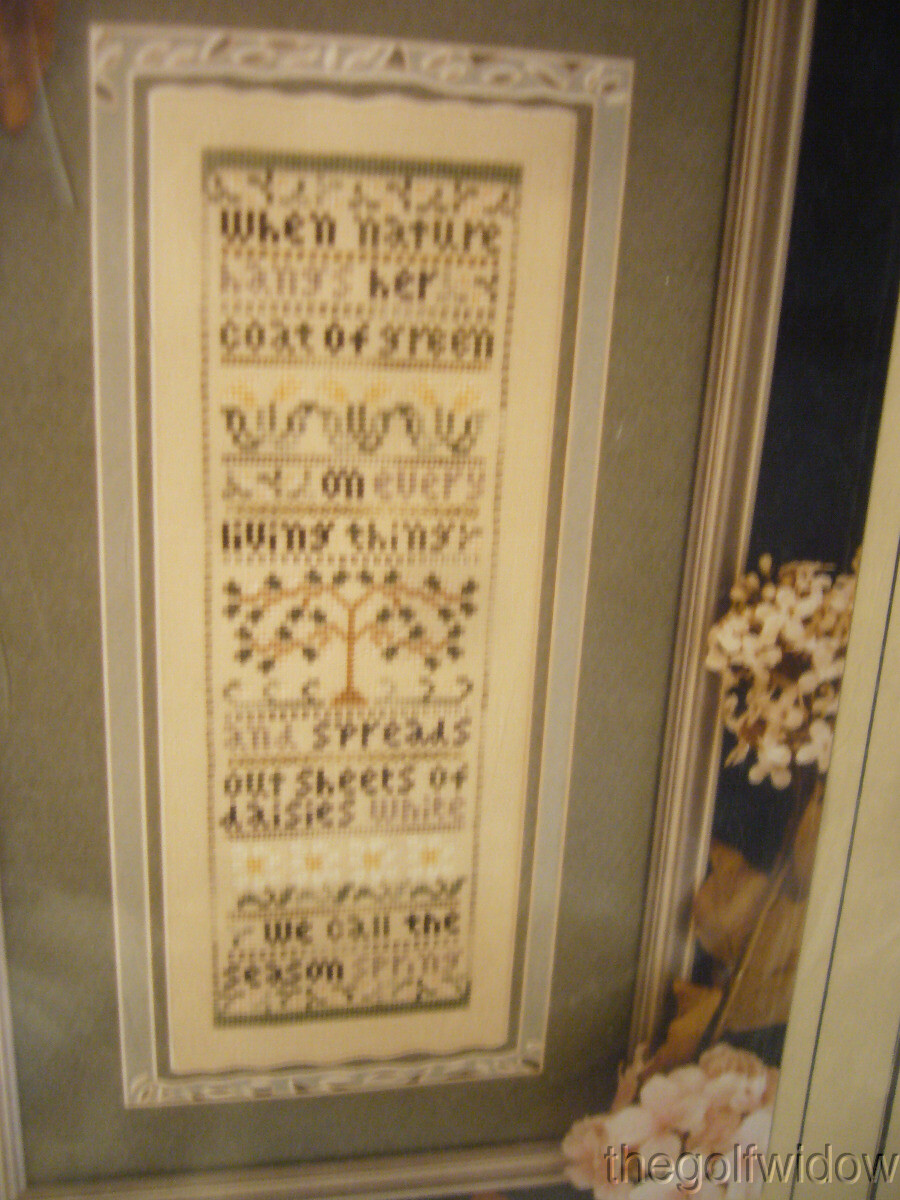 when nature
hangs her
coat of green
on every
living thing
and spreads
out sheets of
daisies white
we call the
season spring
thegolfwidow